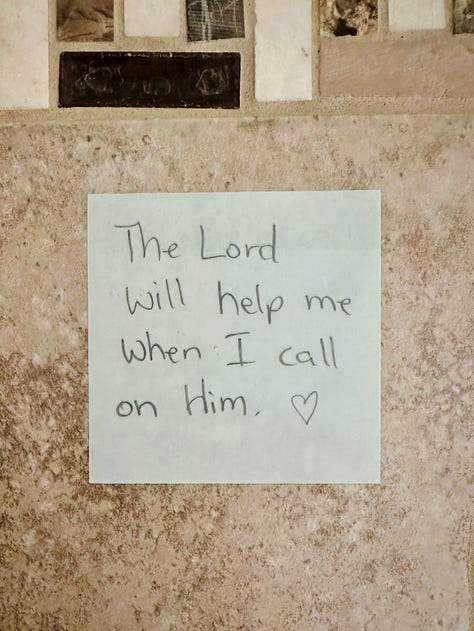 The Lord
will help me
when I call
on Him. ♡